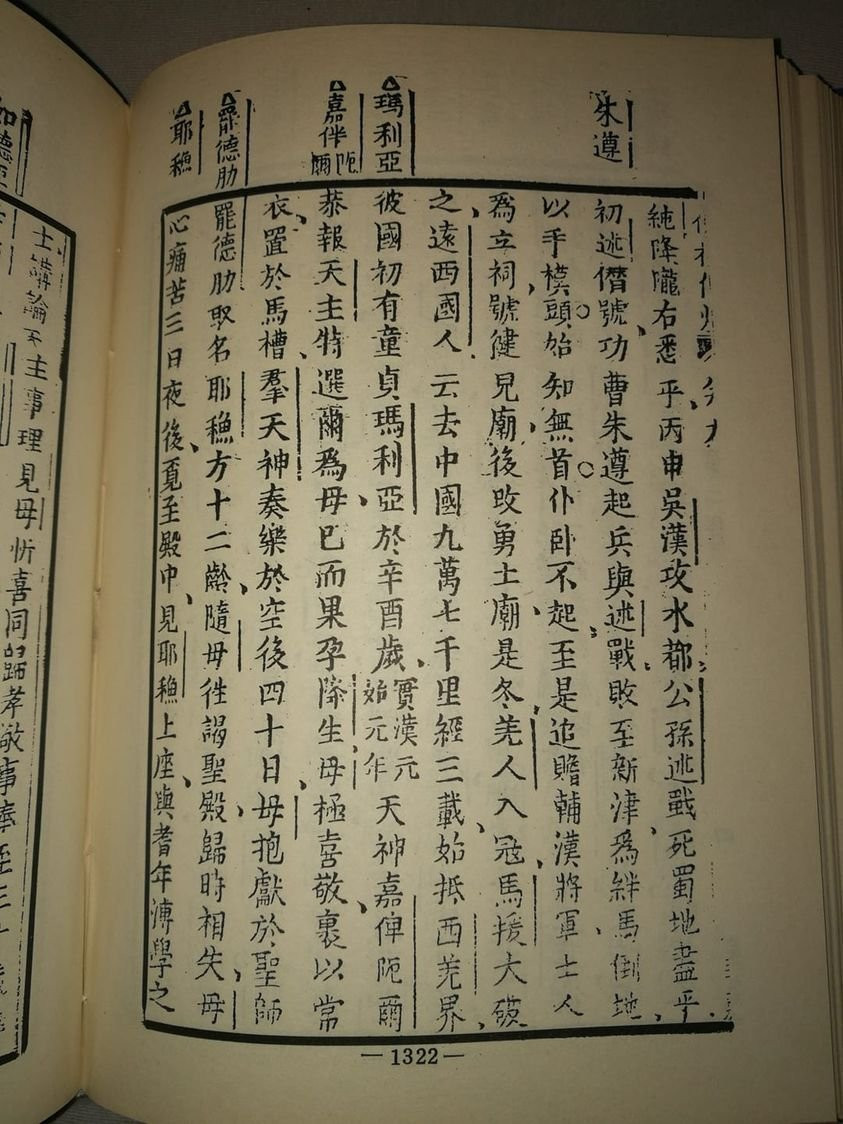 朱遵
瑪利亞
嘉伴阨爾
罷德肋
耶穌
純降隴右悉乎丙申吳漢攻水都公孫述戰死蜀地盡乎
初述僭號功曹朱遵起兵與述戰敗至新津爲絆馬倒地
以手模頭始知無首仆卧不起至是追贍輔漢將軍士人
爲立祠號健兒廟後改勇士廟是冬羌人入冦馬援大
之遠西國人云去中國九萬七千里經三載始抵西羌界
彼國初有童貞瑪利亞於辛酉歲實漢元始元年天神嘉俾阨爾
恭報天主特選爾爲母巳而果孕降生母極喜敬裹以常
衣置於馬槽羣天神奏樂於空後四十日母抱獻於聖師
罷德肋取名耶穌方十二齡隨母徃謁聖殿歸時相失母
心痛苦三日夜後覓至殿中見耶穌上座與耆年溥學之
—1322—
如德亞
士講論天主事理見母忻喜同歸孝敬事奉至三